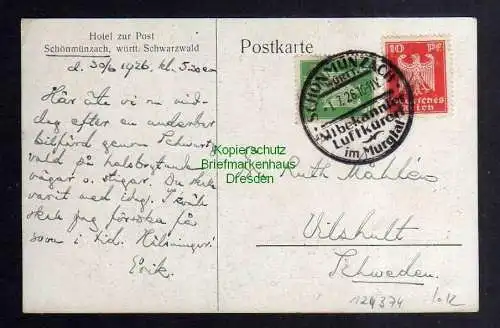 Hotel zur Post
Schönmünzach, württ. Schwarzwald
Postkarte
d. 30/6 1926, kl.
Här äta vi nu mid-
dag efter en underbar
bilfärd genom Schwarz-
wald på halsbrytande
vägar o. stigar. Du skulle
varit med dig. I kväll
skall jag försöka få
i tid. Hälsningar
Erik.
SCHÖNMÜNZACH
WÜRTT.
-1.7.26.
Altbekannter
Luftkurort
im Murgtal
10 Pf
Deutsches
Reich
Kopierschutz
Briefmarkenhaus
Dresden
Ruth Mahlén
Vilshult
Schweden.
124374